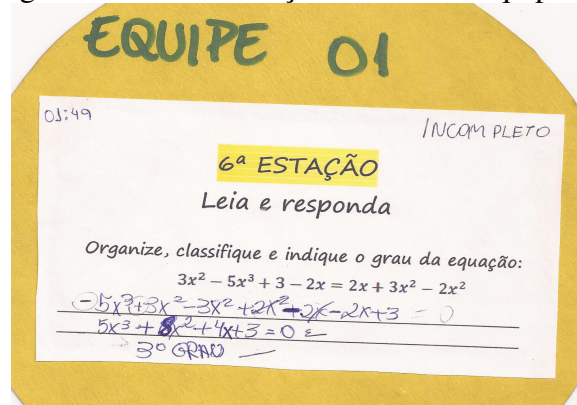 EQUIPE 01
01:49
INCOMPLETO
6ª ESTAÇÃO
Leia e responda
Organize, classifique e indique o grau da equação:
3x² − 5x³ + 3 − 2x = 2x + 3x² − 2x²
−5x³+3x²−3x²+2x²−2x−2x+3 = 0
5x³ + 8x²+4x+3=0
3º GRAU